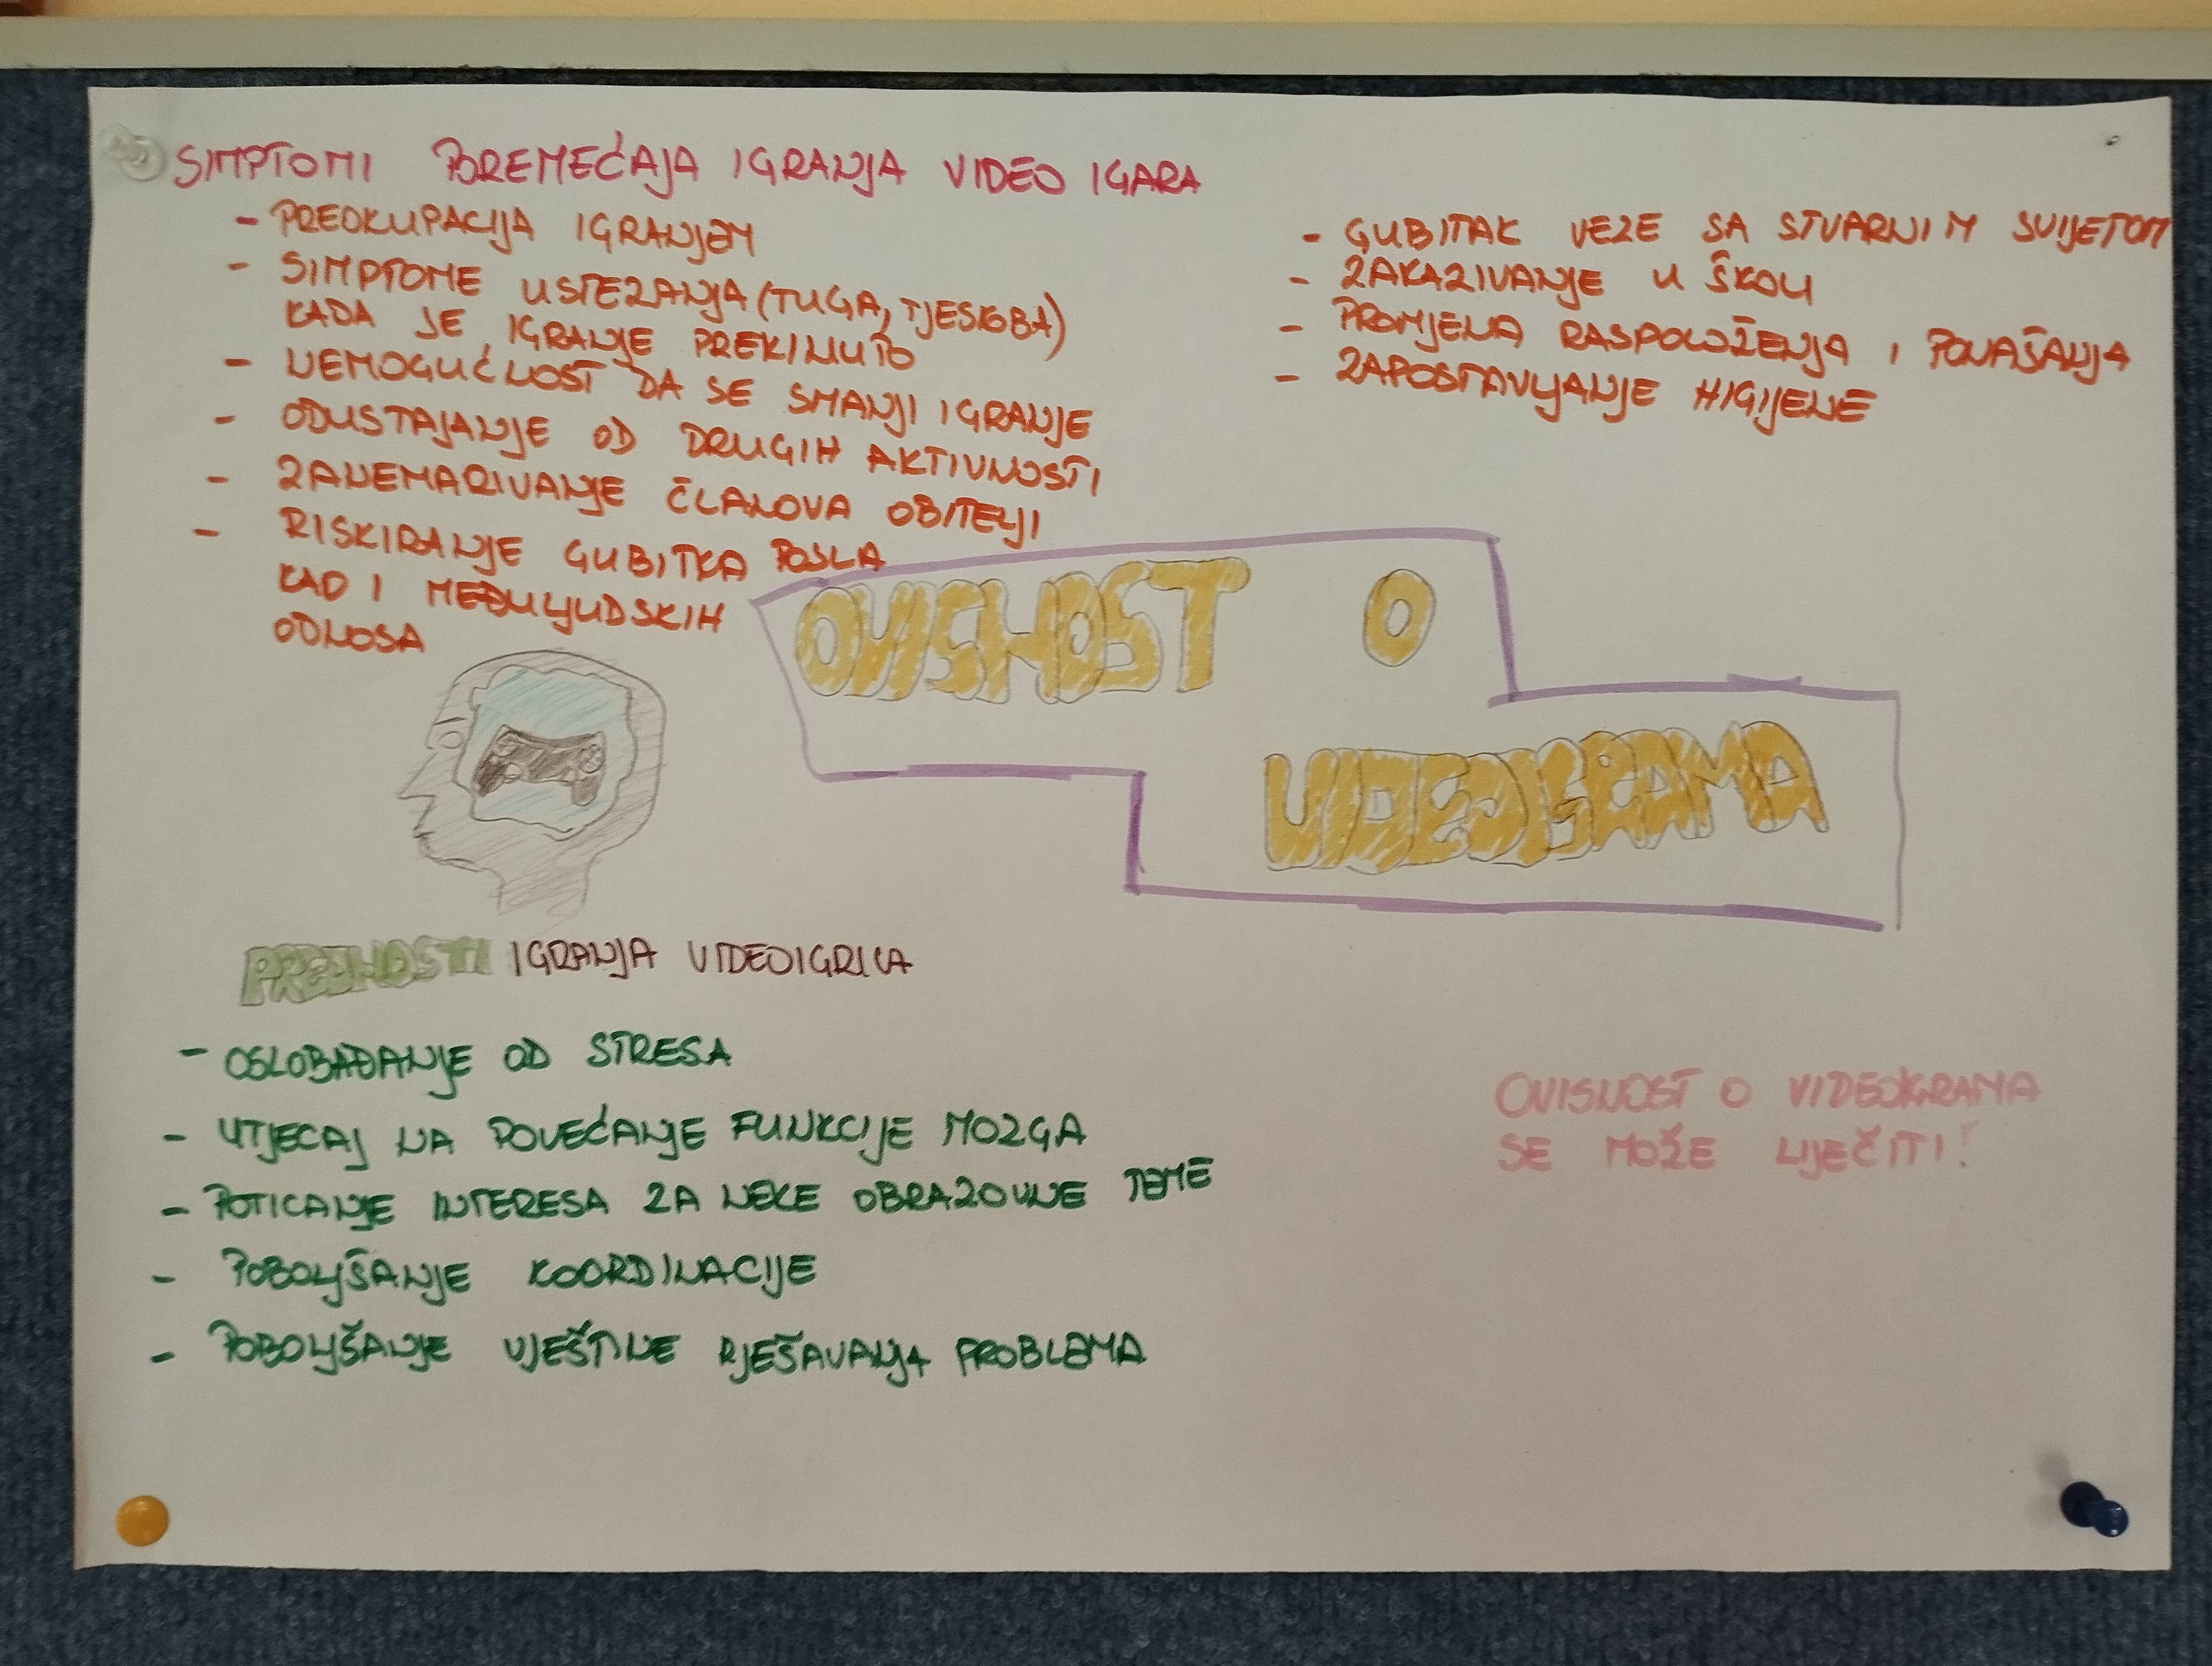 SIMPTOMI POREMEĆAJA IGRANJA VIDEO IGARA
- PREOKUPACIJA IGRANJEM
- SIMPTOME USTEZANJA (TUGA, TJESKOBA)
KADA JE IGRANJE PREKINUTO
- NEMOGUĆNOST DA SE SMANJI IGRANJE
- ODUSTAJANJE OD DRUGIH AKTIVNOSTI
- ZANEMARIVANJE ČLANOVA OBITELJI
- RISKIRANJE GUBITKA POSLA
KAO I MEĐULJUDSKIH
ODNOSA
- GUBITAK VEZE SA STVARNIM SVIJETOM
- ZAKAZIVANJE U ŠKOLI
- PROMJENA RASPOLOŽENJA I PONAŠANJA
- ZAPOSTAVLJANJE HIGIJENE
OVISNOST O
VIDEOIGRAMA
PREDNOSTI IGRANJA VIDEOIGRICA
- OSLOBAĐANJE OD STRESA
- UTJECAJ NA POVEĆANJE FUNKCIJE MOZGA
- POTICANJE INTERESA ZA NEKE OBRAZOVNE TEME
- POBOLJŠANJE KOORDINACIJE
- POBOLJŠANJE VJEŠTINE RJEŠAVANJA PROBLEMA
OVISNOST O VIDEOIGRAMA
SE MOŽE LIJEČITI!